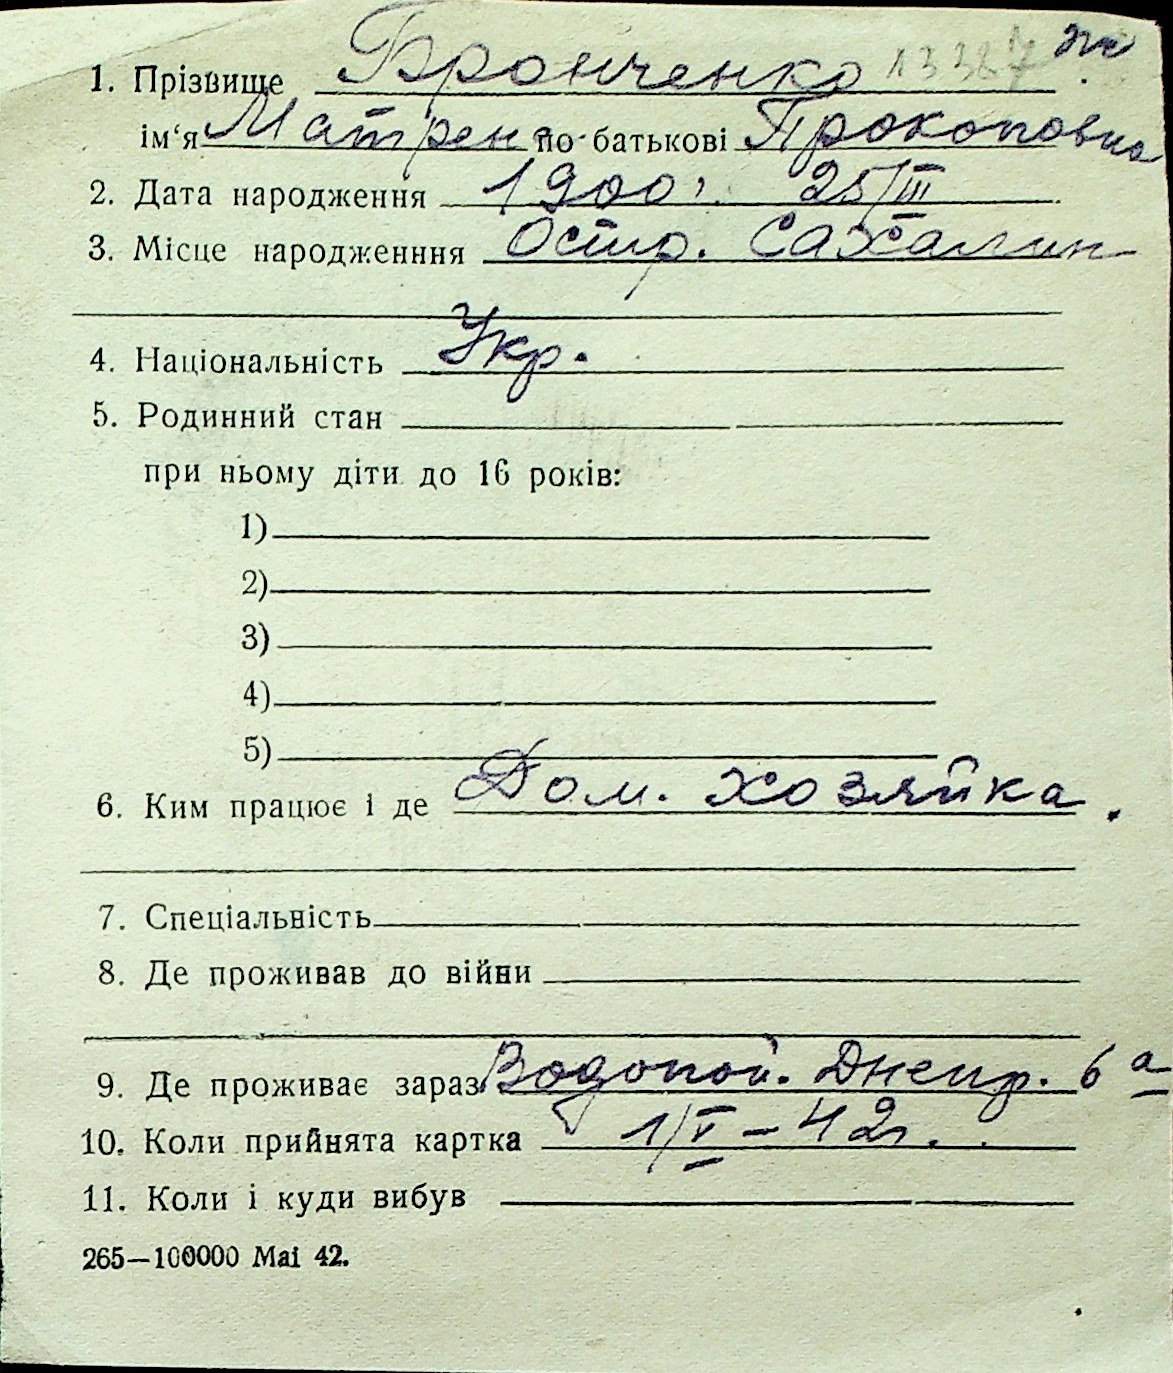 1. Прізвище Бронченко 13387
ім‘я Матрена по-батькові Прокоповна
2. Дата народження 1900 г. 25/III
3. Місце народженння Остр. Сахалин
4. Національність Укр.
5. Родинний стан
при ньому діти до 16 років:
1)
2)
3)
4)
5)
6. Ким працює і де Дом. хозяйка.
7. Спеціальність
8. Де проживав до війни
9. Де проживає зараз Водопой. Днепр. 6а
10. Коли прийнята картка 1/V – 42 г.
11. Коли і куди вибув
265—100000 Mai 42.